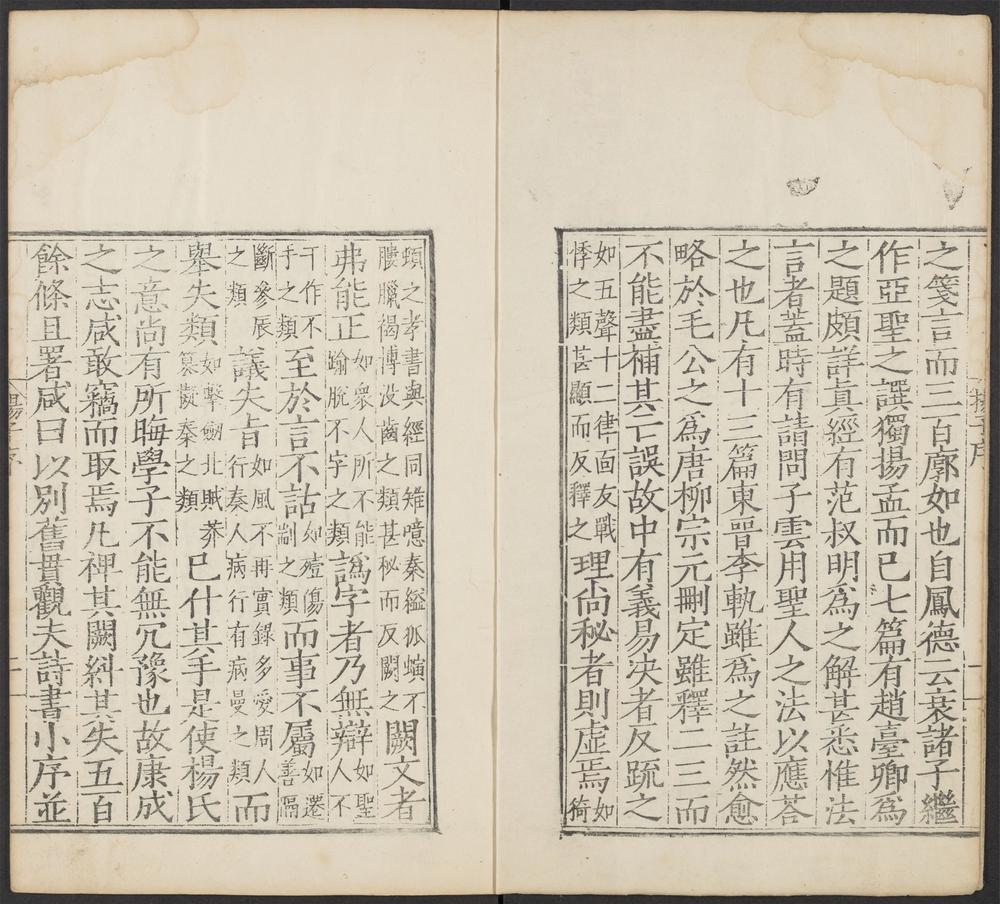 揚子序
之箋言而三百廓如也自鳳德云衰諸子繼
作亞聖之譔獨揚孟而已七篇有趙臺卿爲
之題頗詳眞經有范叔明爲之解甚悉惟法
言者蓋時有請問子雲用聖人之法以應荅
之也凡有十三篇東晉李軌雖爲之註然愈
略於毛公之爲唐柳宗元刪定雖釋二三而
不能盡補其亡誤故中有義易决者反疏之
如五聲十二律面友戰悸之類甚顯而反釋之理尚秘者則虛焉如猗
頓之孝書與經同雉噫秦縊狐螾不膢臘褐博没齒之類甚秘而反闕之闕文者
弗能正如衆人所不能踰脫不字之類譌字者乃無辯如聖人不
干作不手之類至於言不詁如殪傷剬之類而事不屬如遷善隔
斷參辰之類議失旨如風不再實錄多愛周人行秦人病行有病曼之類而
舉失類如擊劒北賊莽篡擬秦之類已什其手是使楊氏
之意尚有所晦學子不能無宂豫也故康成
之志咸敢竊而取焉凡裨其闕糾其失五百
餘條且署咸曰以別舊貫觀夫詩書小序並
揚子序
二